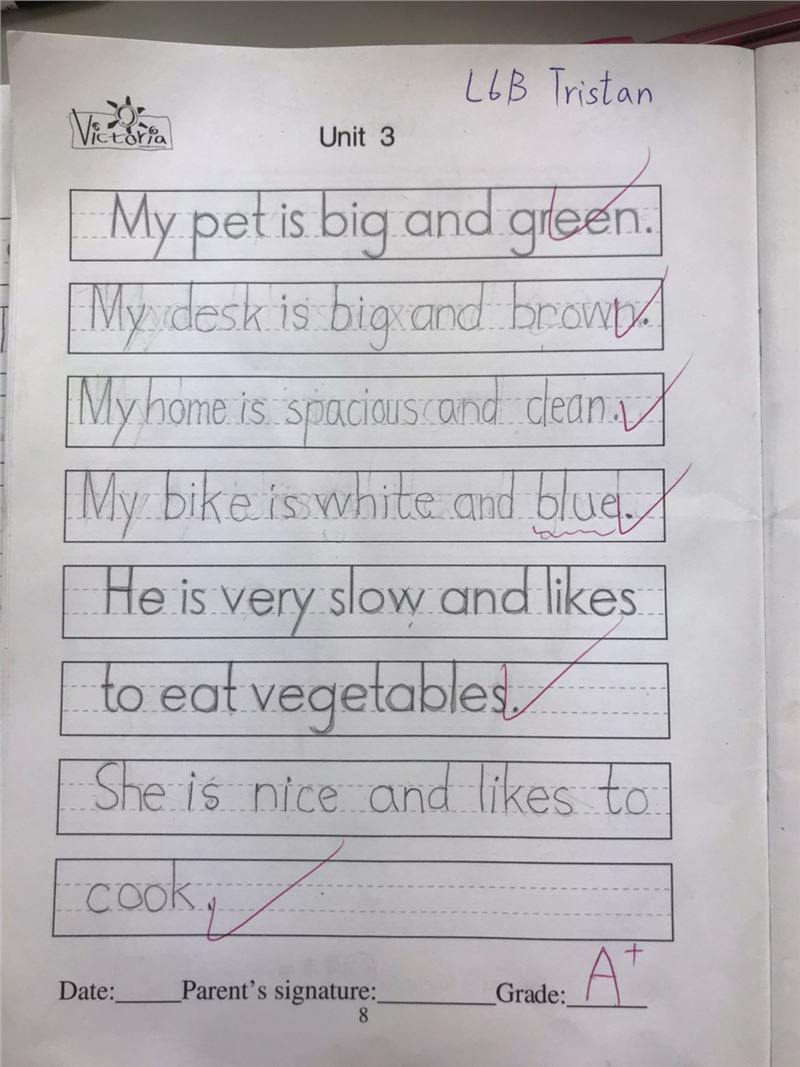 L6B Tristan
Victoria
Unit 3
My pet is big and green.
My desk is big and brown.
My home is spacious and clean.
My bike is white and blue.
He is very slow and likes
to eat vegetables.
She is nice and likes to
cook.
Date:_____Parent's signature:_________Grade:A+
8